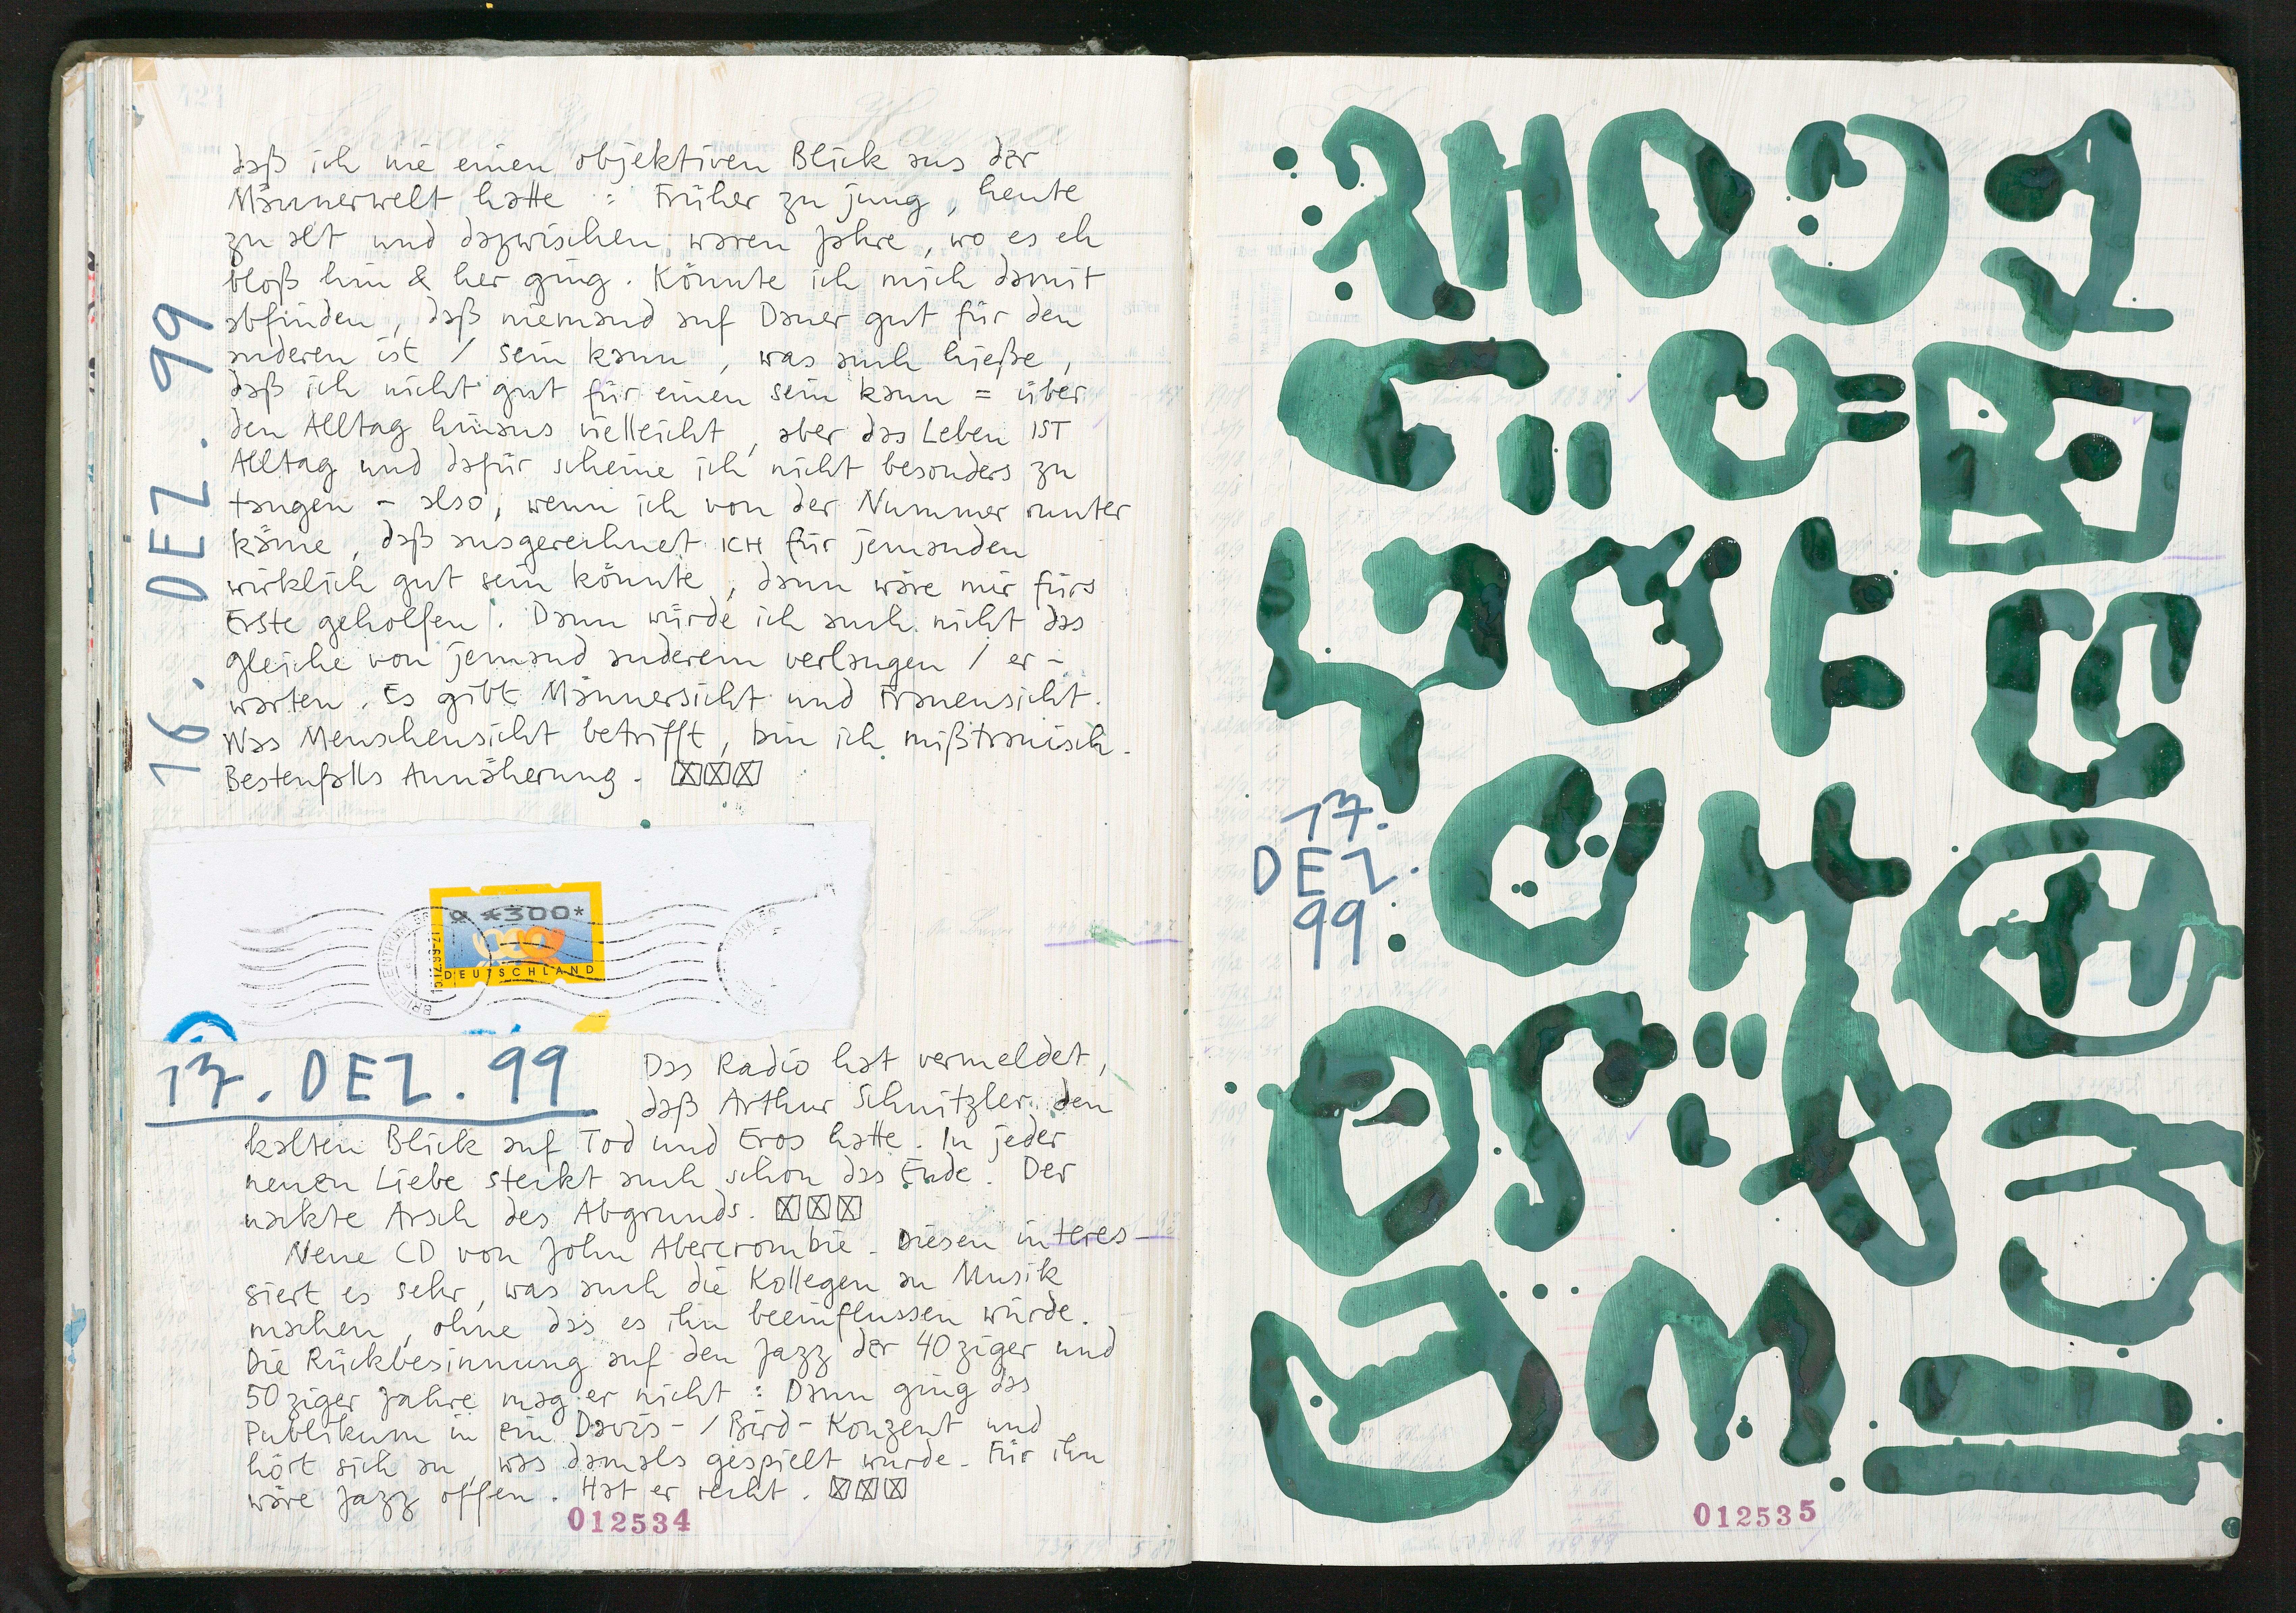 16. DEZ. 99
daß ich nie einen objektiven Blick aus der
Männerwelt hatte : Früher zu jung, heute
zu alt und dazwischen waren Jahre, wo es eh
bloß hin & her ging. Könnte ich mich damit
abfinden, daß niemand auf Dauer gut für den
anderen ist / sein kann, was auch hieße,
daß ich nicht gut für einen sein kann = über
den Alltag hinaus vielleicht, aber das Leben IST
Alltag und dafür scheine ich nicht besonders zu
taugen – also, wenn ich von der Nummer runter
käme, daß ausgerechnet ICH für jemanden
wirklich gut sein könnte, dann wäre mir fürs
Erste geholfen. Dann würde ich auch nicht das
gleiche von jemand anderem verlangen / er-
warten. Es gibt Männersicht und Frauensicht.
Was Menschensicht betrifft, bin ich mißtrauisch.
Bestenfalls Annäherung.
*300*
DEUTSCHLAND
17. DEZ. 99
Das Radio hat vermeldet,
daß Arthur Schnitzler den
kalten Blick auf Tod und Eros hatte. In jeder
neuen Liebe steckt auch schon das Ende. Der
nackte Arsch des Abgrunds.
Neue CD von John Abercrombie. Diesen interes-
siert es sehr, was auch die Kollegen an Musik
machen, ohne das es ihn beeinflussen würde.
Die Rückbesinnung auf den Jazz der 40ziger und
50ziger Jahre mag er nicht : Dann ging das
Publikum in ein Davis- / Bird- Konzert und
hört sich an, was damals gespielt wurde. Für ihn
wäre Jazz offen. Hat er recht.
012534
17.
DEZ.
99
012535